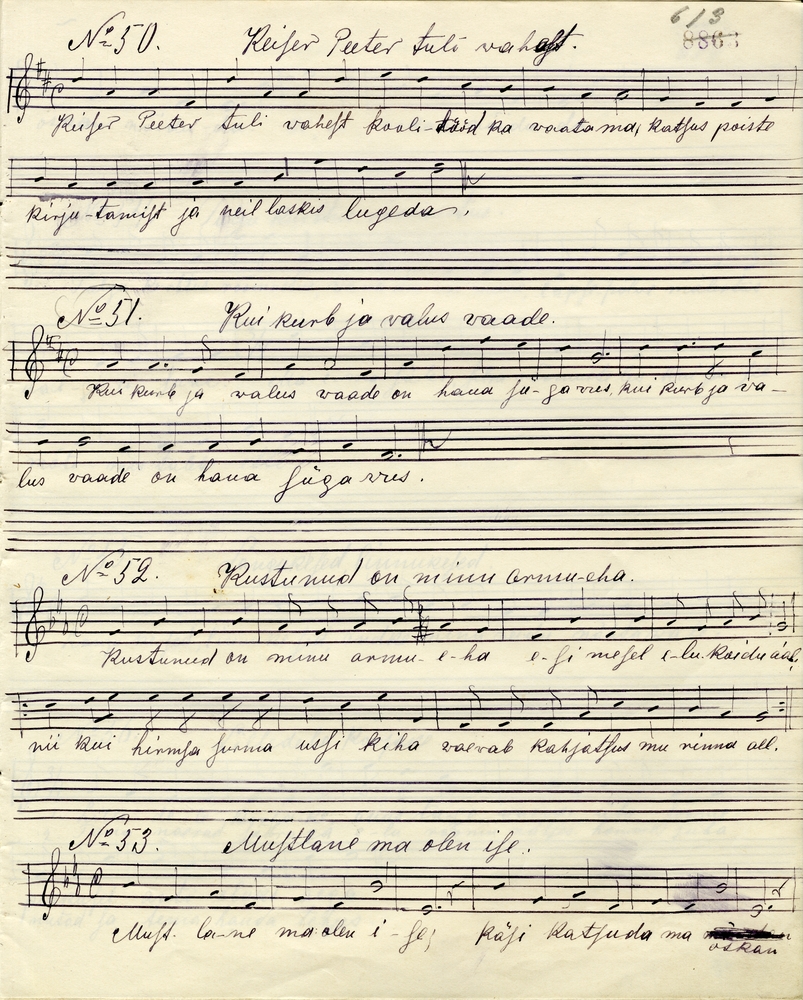 6/3
8863
№ 50. Keiser Peeter tuli vahest.
Keiser Peeter tuli vahest kooli-tööd ka vaatama, katsus poiste
kirju-tamist ja neil laskis lugeda.
№ 51. Kui kurb ja valus vaade.
Kui kurb ja valus vaade on hana sü-ga vus, kui kurb ja va-
lus vaade on hana süga vus.
№ 52. Kustunud on minu armu-eha.
Kustunud on minu armu-e-ha e-si mesel e-lu-koidu ääl,
nii kui hirmsa surma ussi kiha vaevab kahjatsus mu rinna all.
№ 53. Mustlane ma olen ise.
Must-la-ne ma olen i-se, käsi katsuda ma
oskan